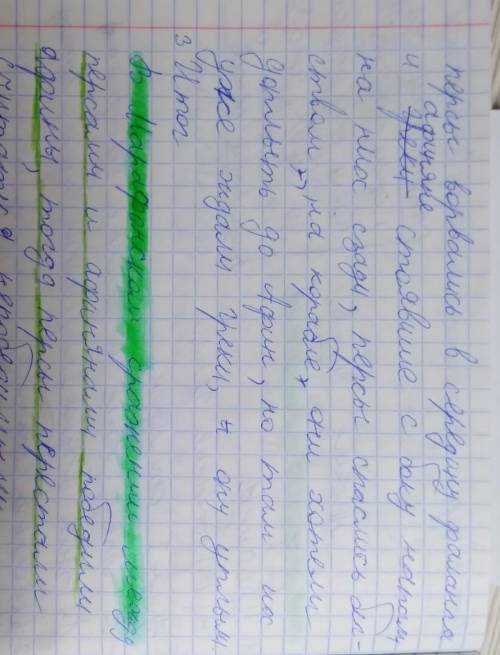 персы ворвались в середину фаланги
афиняне
и греки стоявшие с боку напали
на них сзади, персы спаслись бег-
ством, на корабле, они хотели
доплыть до Афин, но там их
уже ждали греки, и они уплыли
3 Итог
В Марафонском сражении между
персами и афинянами победили
афины, тогда персы перестали
считаться непобедимыми